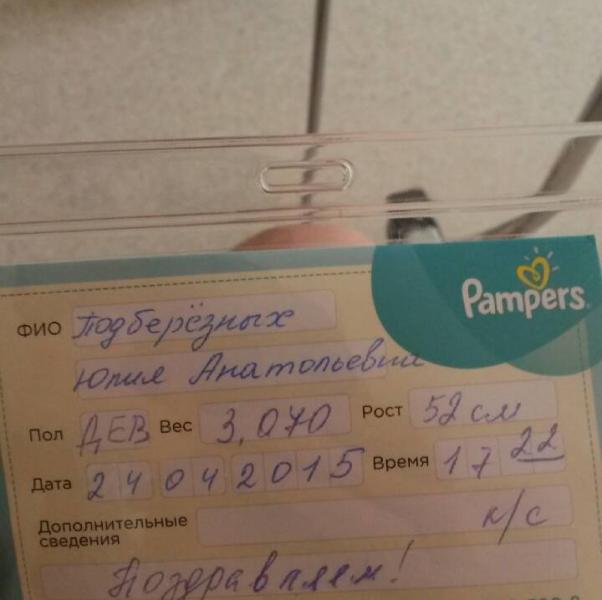 Pampers
ФИО Подберёзных
Юлия Анатольевн
Пол ДЕВ Вес 3,070 Рост 52 см
Дата 24 04 2015 Время 17 22
Дополнительные сведения к/с
Поздравляем!